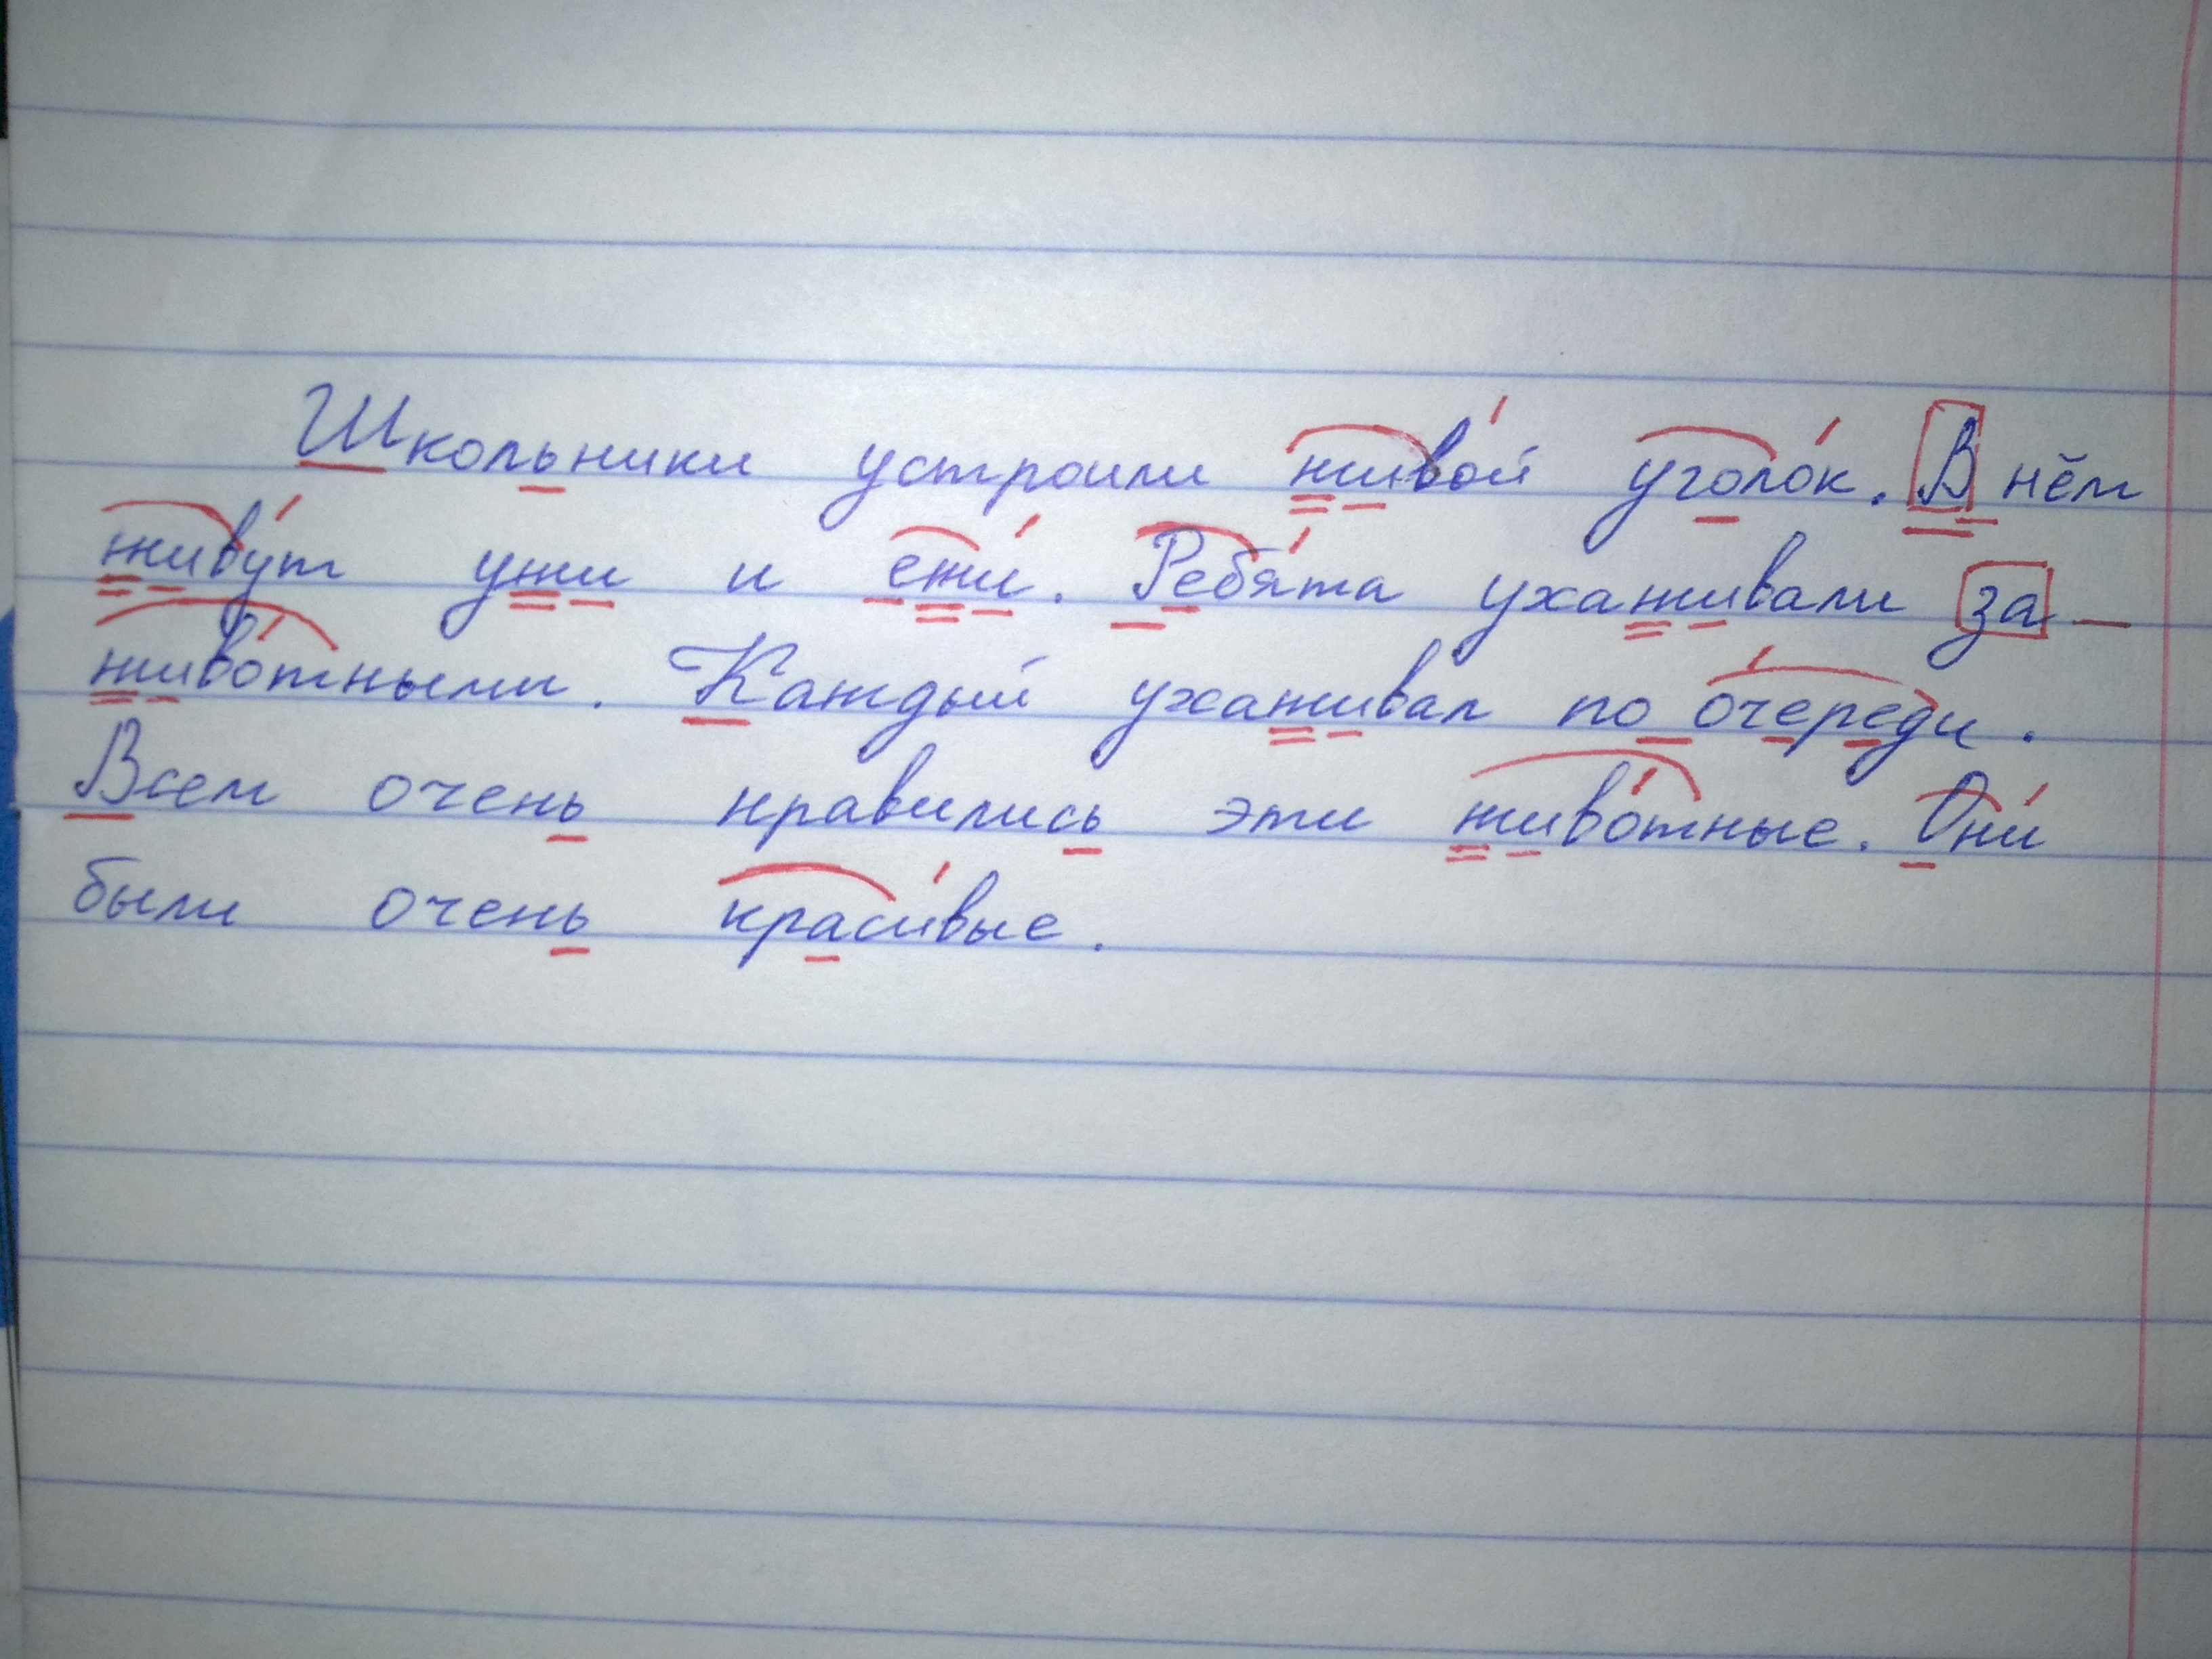 Школьники устроили живой уголок. В нём
живут ужи и ежи. Ребята ухаживали за
животными. Каждый ухаживал по очереди.
Всем очень нравились эти животные. Они
были очень красивые.